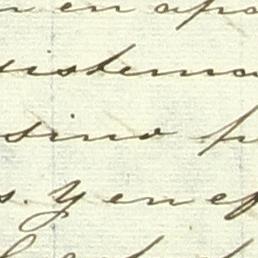 en apo
sistema
sino p
s. Y en ef